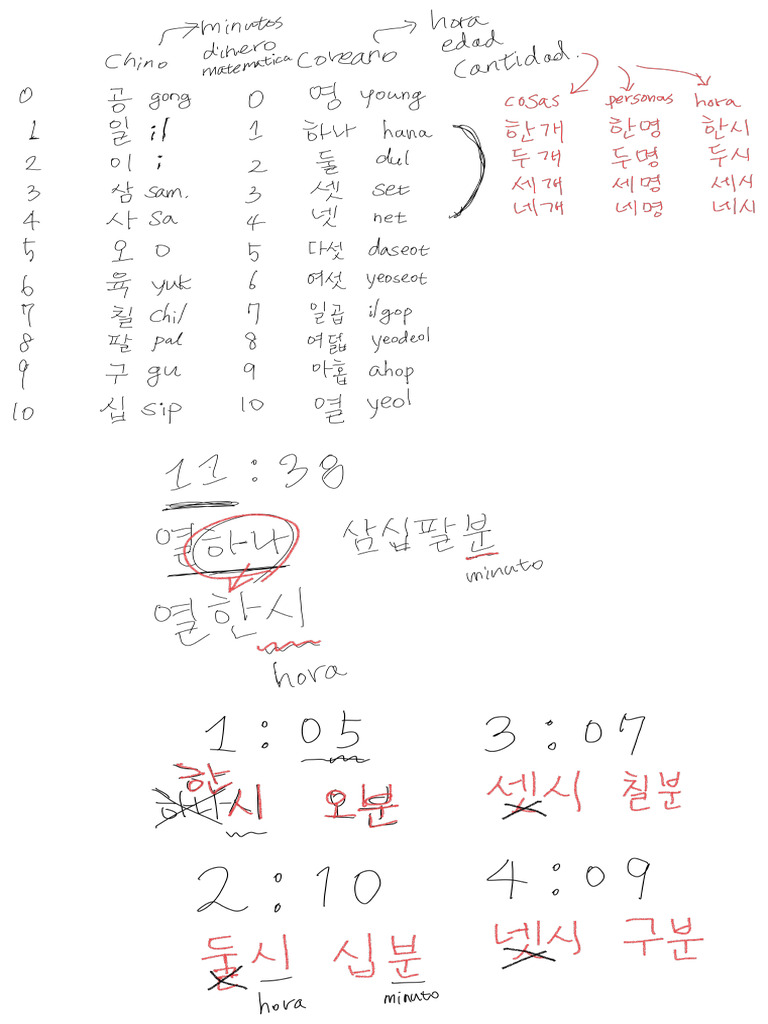 minutos hora
dinero edad
Chino matematica Coreano Cantidad.
cosas personas hora
0 공 gong 0 영 young
1 일 il 1 하나 hana 한개 한명 한시
2 이 i 2 둘 dul 두개 두명 두시
3 삼 sam. 3 셋 set 세개 세명 세시
4 사 Sa 4 넷 net 네개 네명 네시
5 오 O 5 다섯 daseot
6 육 yuk 6 여섯 yeoseot
7 칠 chil 7 일곱 ilgop
8 팔 pal 8 여덟 yeodeol
9 구 gu 9 아홉 ahop
10 십 sip 10 열 yeol
11:38
열하나 삼십팔분
minuto
열한시
hora
1:05 3:07
한
하나시 오분 셋시 칠분
2:10 4:09
둘시 십분 넷시 구분
hora minuto